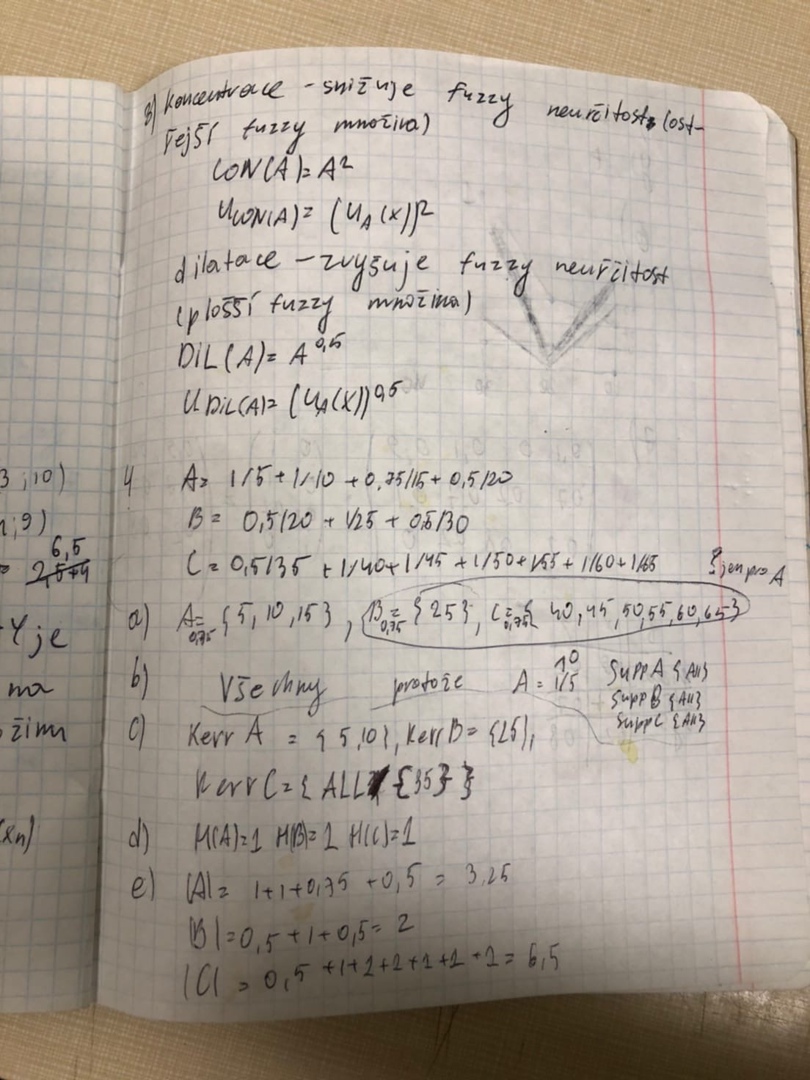 3) Koncentrace - snižuje fuzzy neurčitost (ost-
řejší fuzzy množina)
CON(A)= A²
UCON(A)= (UA(x))²
dilatace - zvyšuje fuzzy neurčitost
(plošší fuzzy množina)
DiL(A)= A^0,5
UDiL(A)= (UA(x))^0,5
3;10)
4 A= 1/5 + 1/10 + 0,75/15 + 0,5/20
;9)
B= 0,5/20 + 1/25 + 0,5/30
6,5
C= 0,5/35 + 1/40 + 1/45 + 1/50 + 1/55 + 1/60 + 1/65
} jen pro A
a) A0,75= {5, 10, 15}, B0,75= {25}, C0,75= {40,45,50,55,60,65}
Yje
b) Všechny protože A = 1/5
10
SuppA {All}
SuppB {All}
SuppC {All}
ma
žinu
c) Kerr A = {5,10}, Kerr B= {25},
Kerr C= {ALL \ {35}}
xn)
d) H(A)=1 H(B)=1 H(C)=1
e) |A|= 1+1+0,75+0,5 = 3,25
|B|=0,5+1+0,5= 2
|C| = 0,5+1+1+1+1+1+1= 6,5